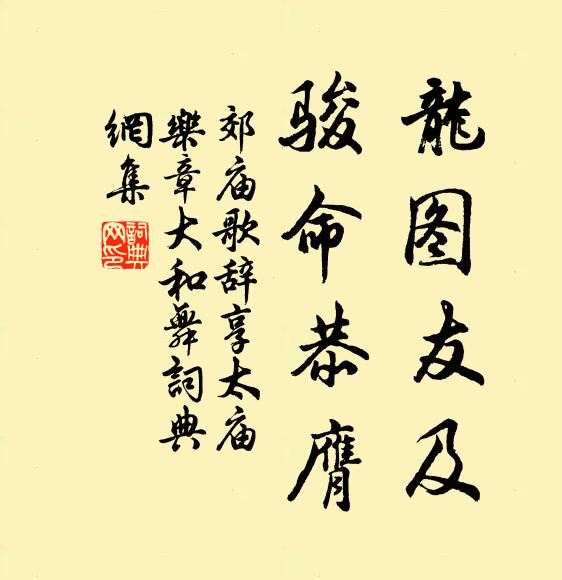 龍图友及
骏命恭膺
郊庙歌辞享太庙
樂章大和舞詞典
網集
詞典網印